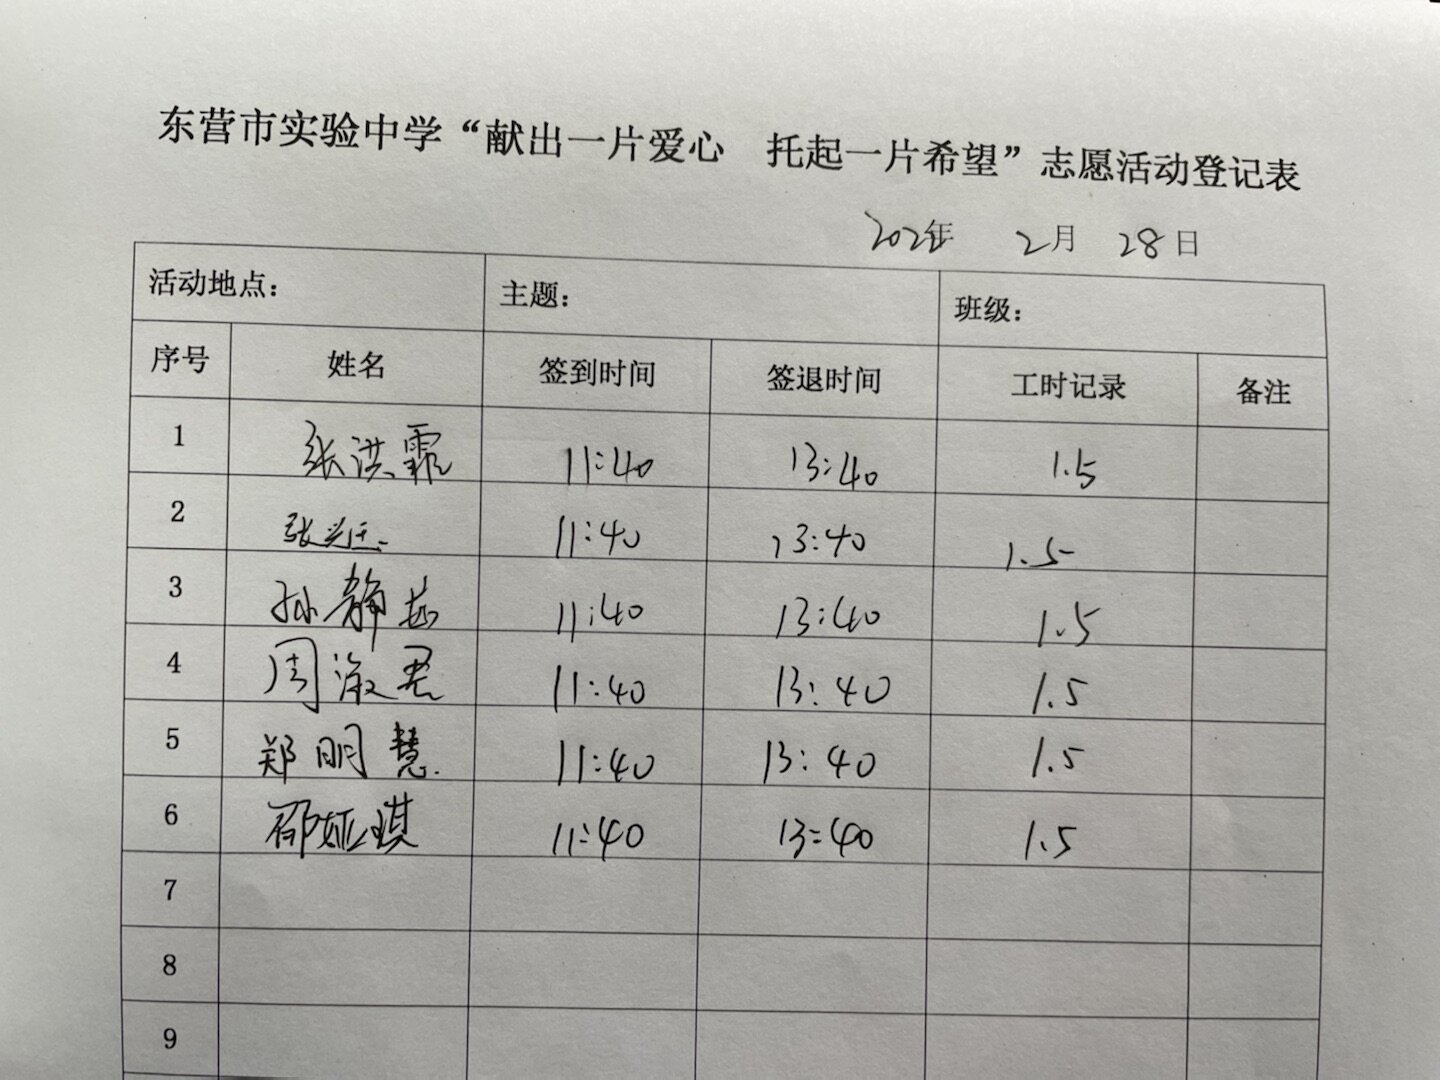 东营市实验中学“献出一片爱心 托起一片希望”志愿活动登记表
年 2月 28日
活动地点： 主题： 班级：
序号 姓名 签到时间 签退时间 工时记录 备注
1 张洪霏 11:40 13:40 1.5
2 张兴 11:40 13:40 1.5
3 孙静 11:40 13:40 1.5
4 周淑君 11:40 13:40 1.5
5 郑明慧 11:40 13:40 1.5
6 邵娅琪 11:40 13:40 1.5
7
8
9